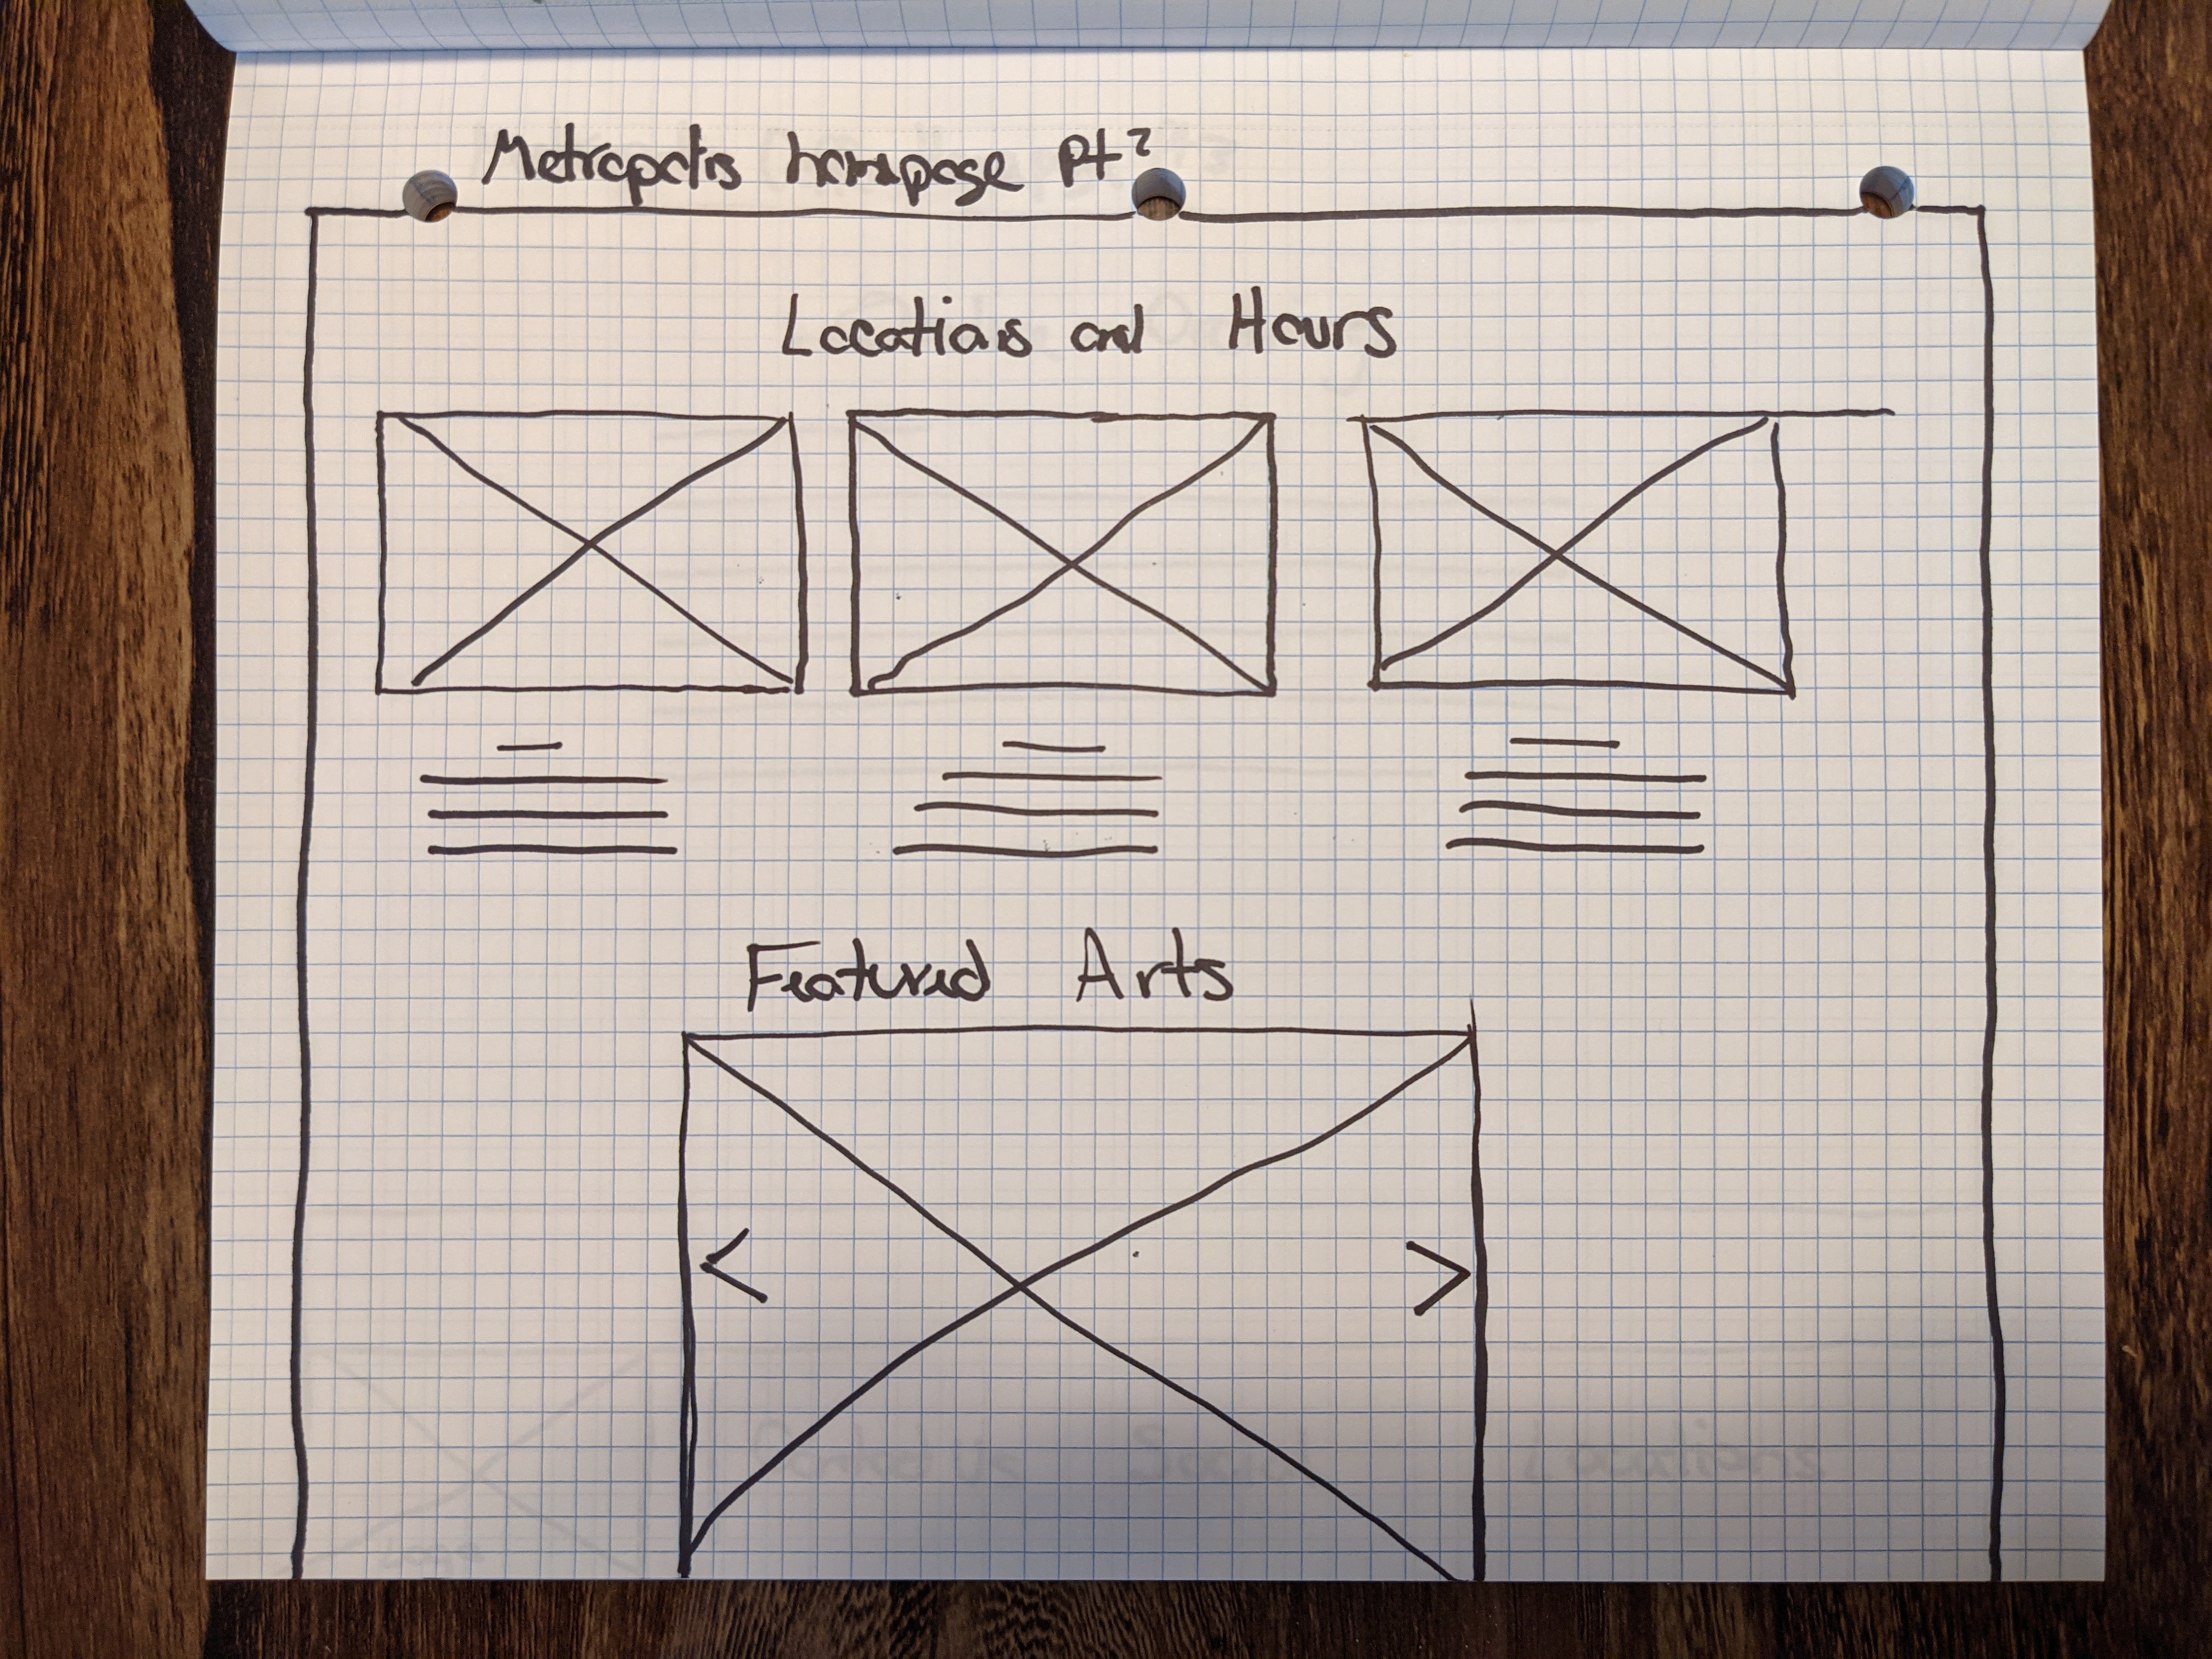 Metropolis homepage pt 2
Locations and Hours
Featured Arts
<
>